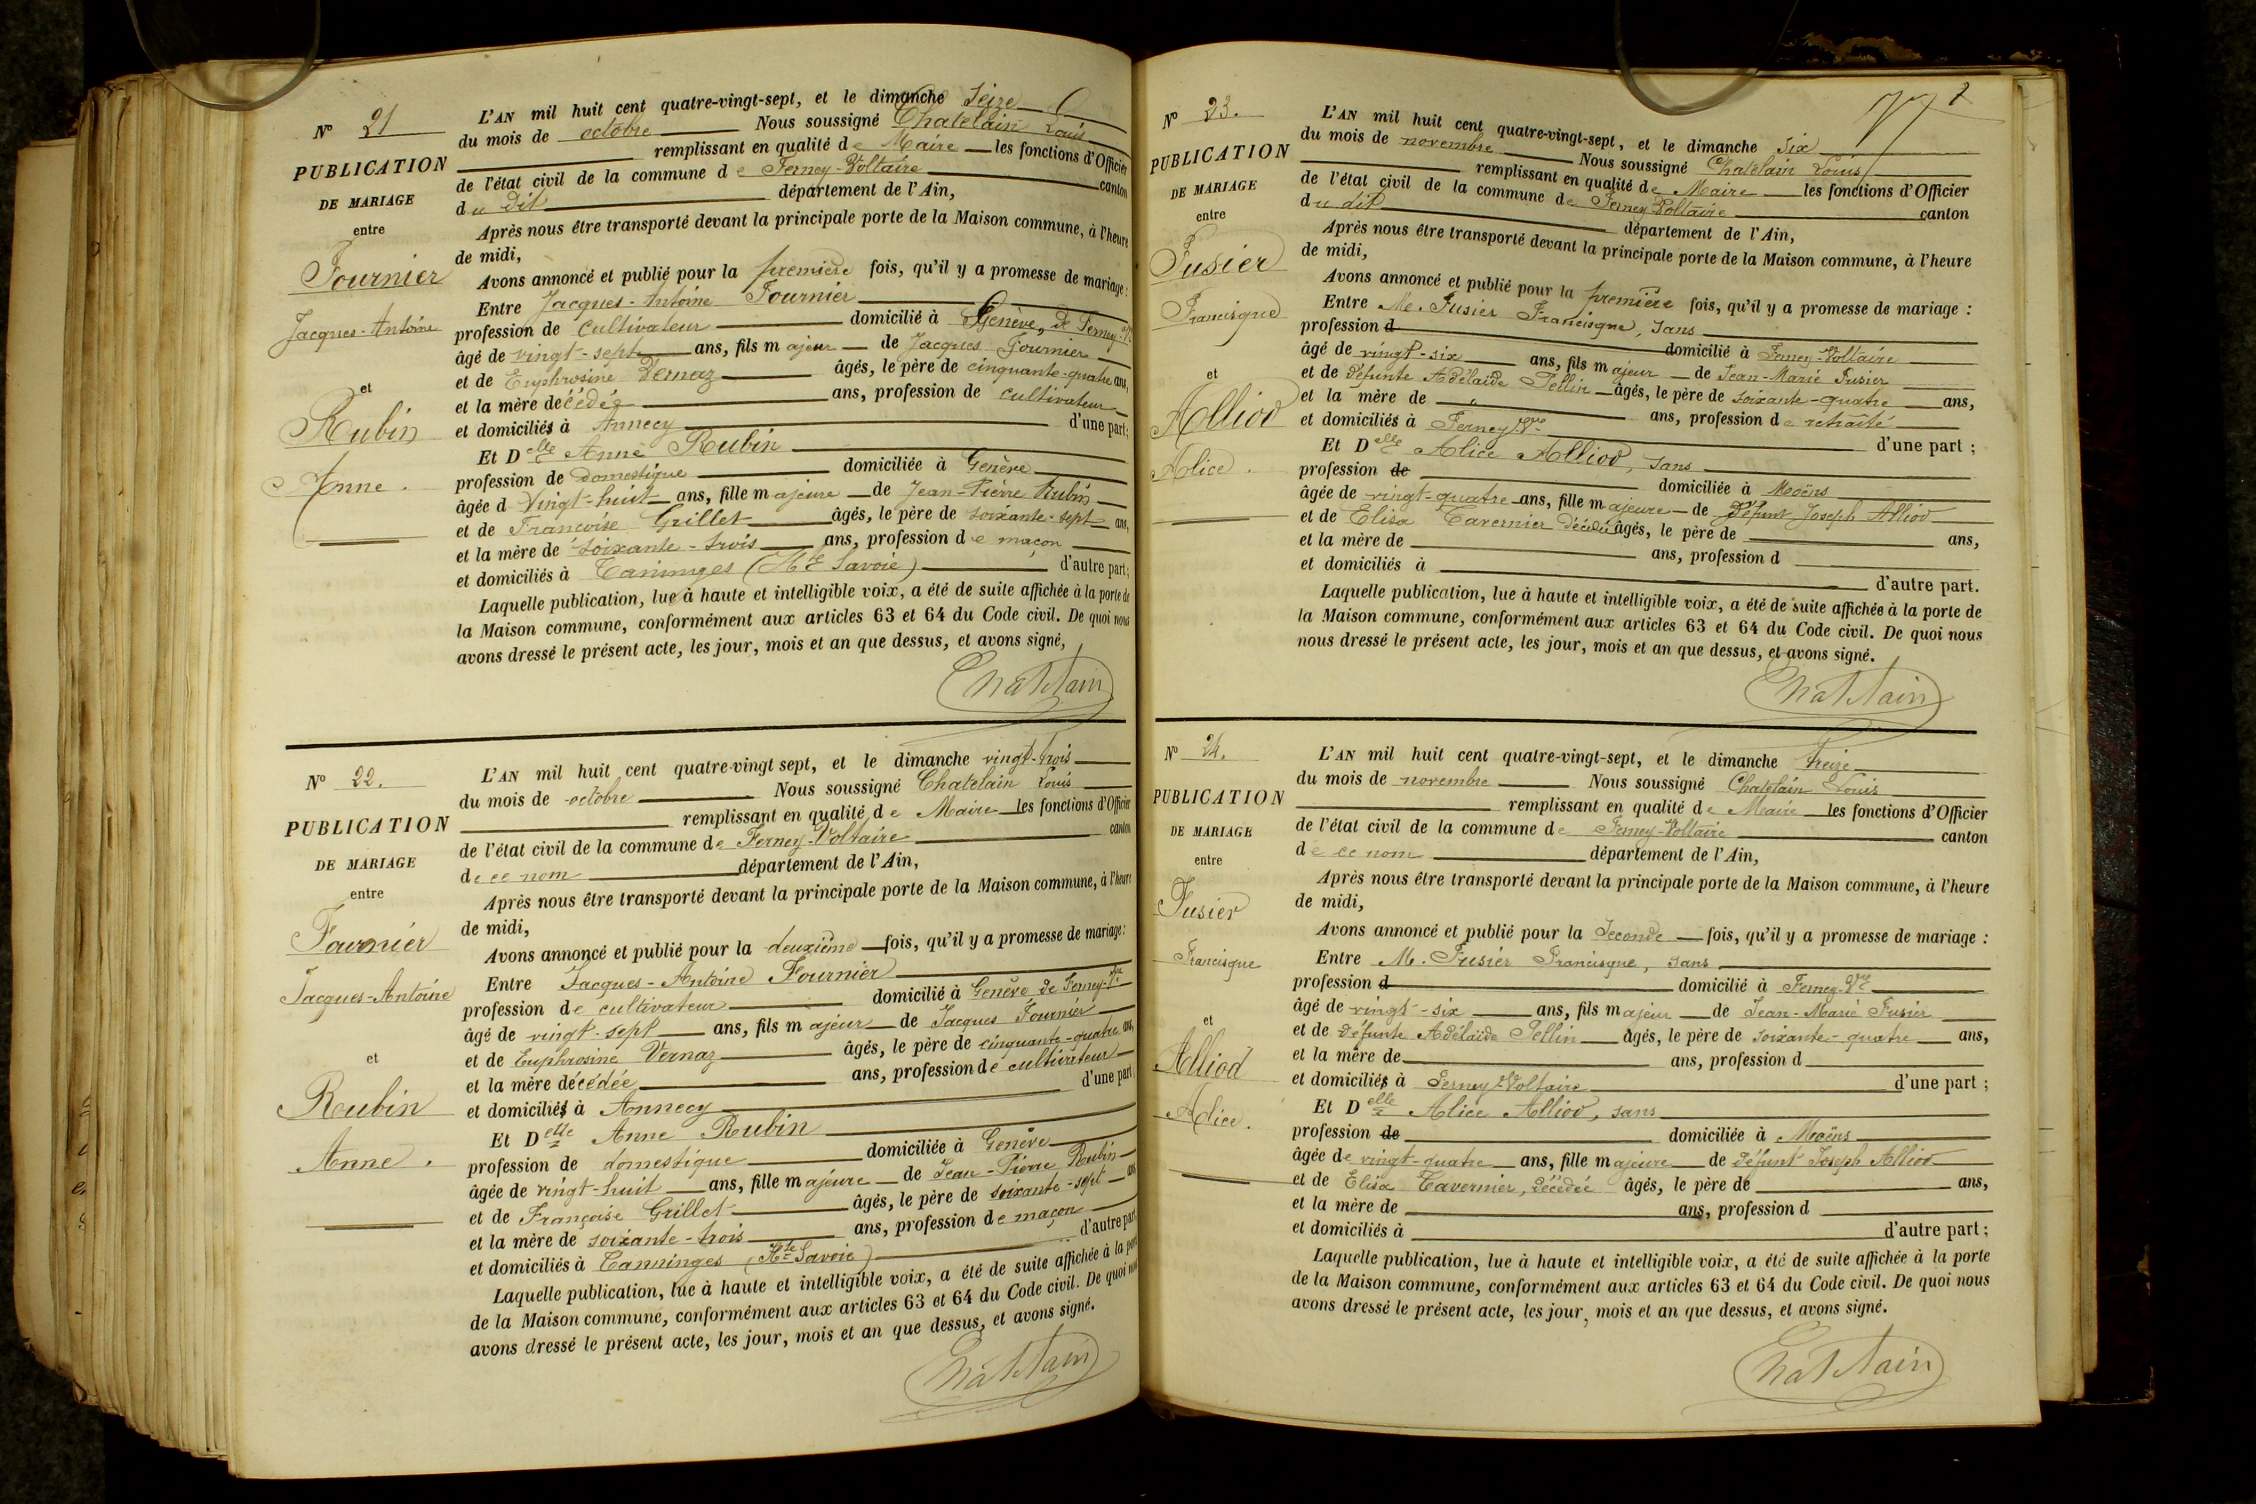 N° 21
PUBLICATION
DE MARIAGE
entre
Fournier
Jacques-Antoine
et
Rubin
Anne.
L'AN mil huit cent quatre-vingt-sept, et le dimanche Seize
du mois de octobre Nous soussigné Chatelain Louis
remplissant en qualité de Maire les fonctions d'Officier
de l'état civil de la commune de Ferney-Voltaire canton
du dit département de l'Ain,
Après nous être transporté devant la principale porte de la Maison commune, à l'heure
de midi,
Avons annoncé et publié pour la première fois, qu'il y a promesse de mariage:
Entre Jacques-Antoine Fournier
profession de cultivateur domicilié à Genève, de Ferney-V
âgé de vingt-sept ans, fils majeur de Jacques Fournier
et de Euphrosine ans, âgés, le père de cinquante-quatre ans,
et la mère décédée ans, profession de cultivateur
et domiciliés à Annecy d'une part;
Et Delle Anne Rubin
profession de domestique domiciliée à Genève
âgée d Vingt-huit ans, fille majeure de Jean-Pierre Rubin
et de Françoise Grillet âgés, le père de soixante-sept ans,
et la mère de soixante-trois ans, profession de maçon
et domiciliés à Taninges (Hte Savoie) d'autre part;
Laquelle publication, lue à haute et intelligible voix, a été de suite affichée à la porte de
la Maison commune, conformément aux articles 63 et 64 du Code civil. De quoi nous
avons dressé le présent acte, les jour, mois et an que dessus, et avons signé,
Chatelain
N° 22.
PUBLICATION
DE MARIAGE
entre
Fournier
Jacques-Antoine
et
Rubin
Anne.
L'AN mil huit cent quatre-vingt sept, et le dimanche vingt-trois
du mois de octobre Nous soussigné Chatelain Louis
remplissant en qualité de Maire les fonctions d'Officier
de l'état civil de la commune de Ferney-Voltaire canton
de ce nom département de l'Ain,
Après nous être transporté devant la principale porte de la Maison commune, à l'heure
de midi,
Avons annoncé et publié pour la deuxième fois, qu'il y a promesse de mariage:
Entre Jacques-Antoine Fournier
profession de cultivateur domicilié à Genève de Ferney-Vre
âgé de vingt-sept ans, fils majeur de Jacques Fournier
et de Euphrosine Vernaz âgés, le père de cinquante-quatre ans,
et la mère décédée ans, profession de cultivateur
et domiciliés à Annecy d'une part
Et Delle Anne Rubin
profession de domestique domiciliée à Genève
âgée de vingt-huit ans, fille majeure de Jean-Pierre Rubin
et de Françoise Grillet âgés, le père de soixante-sept ans
et la mère de soixante-trois ans, profession de maçon
et domiciliés à Tanninges (Hte Savoie) d'autre part
Laquelle publication, lue à haute et intelligible voix, a été de suite affichée à la porte
de la Maison commune, conformément aux articles 63 et 64 du Code civil. De quoi nous
avons dressé le présent acte, les jour, mois et an que dessus, et avons signé.
Chatelain
N° 23.
PUBLICATION
DE MARIAGE
entre
Fusier
Francisque
et
Alliod
Alice.
L'AN mil huit cent quatre-vingt-sept, et le dimanche six
du mois de novembre Nous soussigné Chatelain Louis
remplissant en qualité de Maire les fonctions d'Officier
de l'état civil de la commune de Ferney Voltaire canton
du dit département de l'Ain,
Après nous être transporté devant la principale porte de la Maison commune, à l'heure
de midi,
Avons annoncé et publié pour la première fois, qu'il y a promesse de mariage :
Entre M. Fusier Francisque, sans
profession d domicilié à Ferney-Voltaire
âgé de vingt-six ans, fils majeur de Jean-Marie Fusier
et de défunte Adélaïde Pellin âgés, le père de soixante-quatre ans,
et la mère de " ans, profession de retraité
et domiciliés à Ferney-Vre d'une part ;
Et Delle Alice Alliod, sans
profession de domiciliée à Moëns
âgée de vingt-quatre ans, fille majeure de défunt Joseph Alliod
et de Elisa Tavernier décédée âgés, le père de ans,
et la mère de ans, profession d
et domiciliés à d'autre part.
Laquelle publication, lue à haute et intelligible voix, a été de suite affichée à la porte de
la Maison commune, conformément aux articles 63 et 64 du Code civil. De quoi nous
nous dressé le présent acte, les jour, mois et an que dessus, et avons signé.
Chatelain
N° 24.
PUBLICATION
DE MARIAGE
entre
Fusier
Francisque
et
Alliod
Alice.
L'AN mil huit cent quatre-vingt-sept, et le dimanche treize
du mois de novembre Nous soussigné Chatelain Louis
remplissant en qualité de Maire les fonctions d'Officier
de l'état civil de la commune de Ferney-Voltaire canton
de ce nom département de l'Ain,
Après nous être transporté devant la principale porte de la Maison commune, à l'heure
de midi,
Avons annoncé et publié pour la Seconde fois, qu'il y a promesse de mariage :
Entre M. Fusier Francisque, sans
profession d domicilié à Ferney-Vre
âgé de vingt-six ans, fils majeur de Jean-Marie Fusier
et de défunte Adélaïde Pellin âgés, le père de soixante-quatre ans,
et la mère de ans, profession d
et domiciliés à Ferney-Voltaire d'une part ;
Et Delle Alice Alliod, sans
profession de domiciliée à Moëns
âgée de vingt-quatre ans, fille majeure de défunt Joseph Alliod
et de Elisa Tavernier, décédée âgés, le père de ans,
et la mère de ans, profession d
et domiciliés à d'autre part ;
Laquelle publication, lue à haute et intelligible voix, a été de suite affichée à la porte
de la Maison commune, conformément aux articles 63 et 64 du Code civil. De quoi nous
avons dressé le présent acte, les jour, mois et an que dessus, et avons signé.
Chatelain